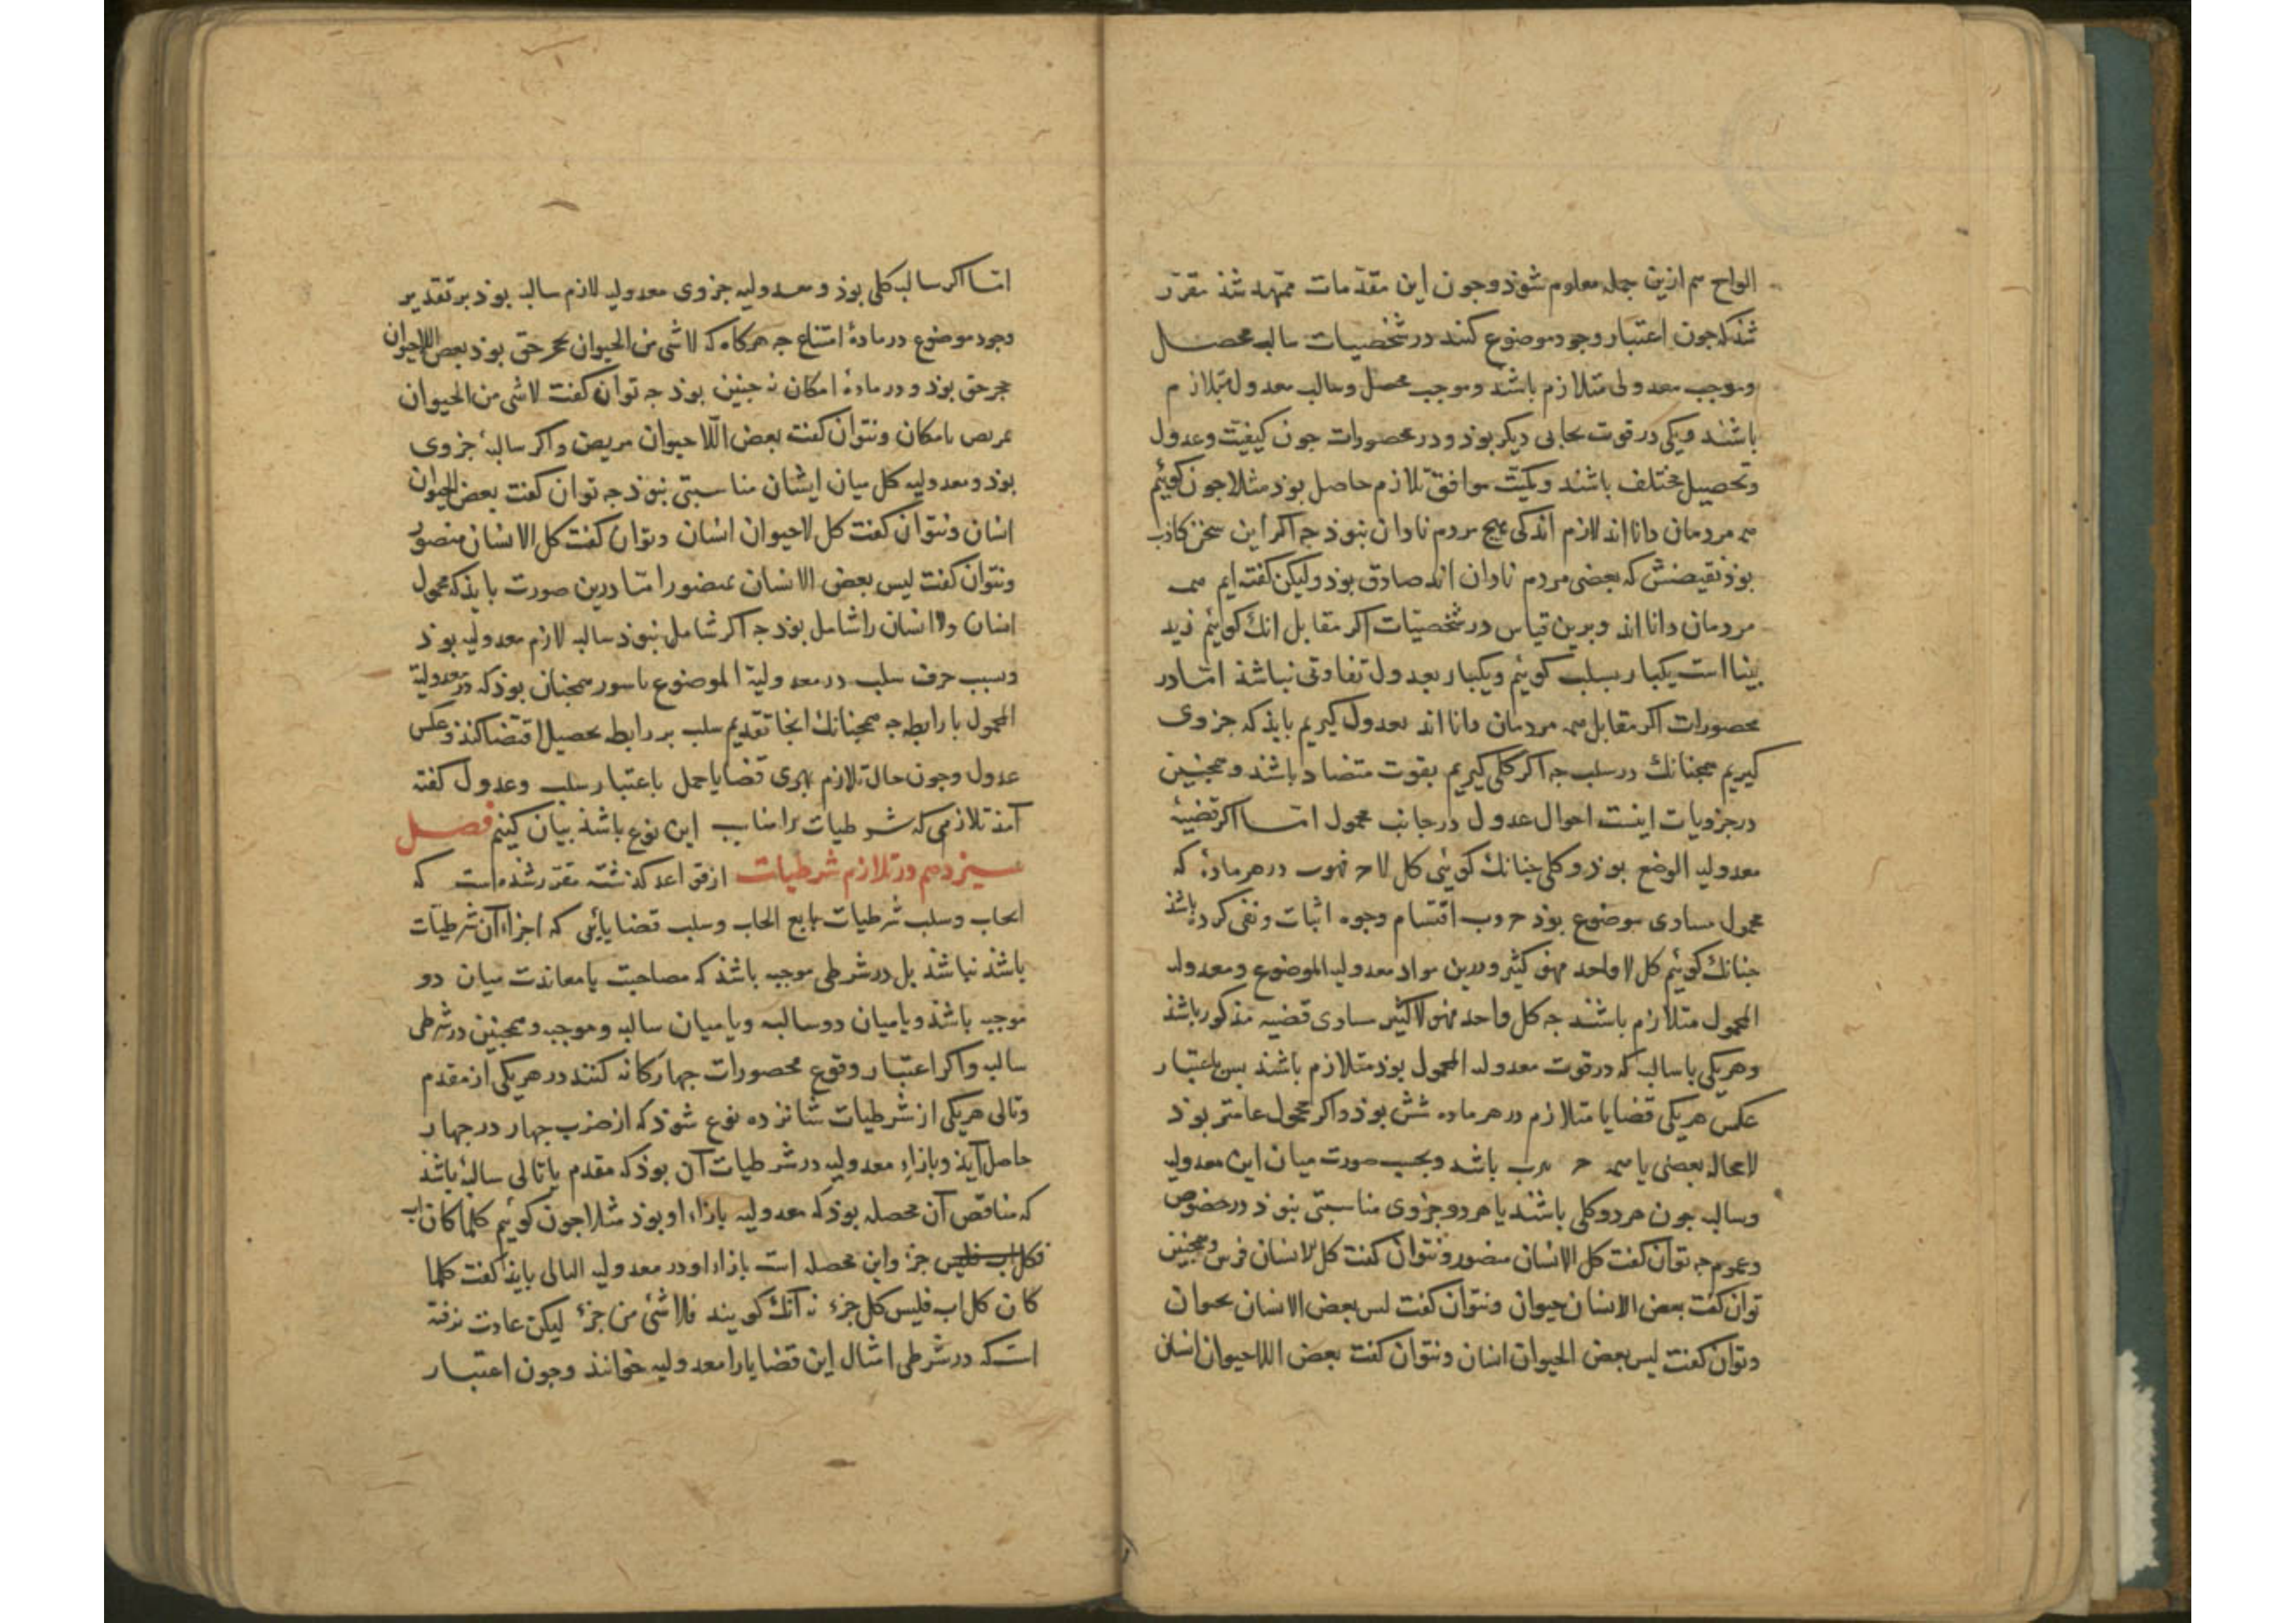 الواح هم ازین جمله معلوم شوذ وجون این مقدمات ممهد شذ مقرر
شذ که جون اعتبار وجود موضوع کنند در شخصیات سالبه محصل
وموجب معدولی متلازم باشند وموجب محصل وسالب معدول متلازم
باشند ویکی در قوت بجای دیگر بوذ ودر محصورات جون کیفیت وعدول
وتحصیل مختلف باشند وکمیت موافق تلازم حاصل بوذ مثلا جون کوئیم
همه مردمان دانا اند لازم اند کی هیج مردم نادان نبوذ جه اکر این سخن کاذب
بوذ نقیضش که بعضی مردم نادان اند صادق بوذ ولیکن کفته ایم همه
مردمان دانا اند وبرین قیاس در شخصیات اکر مقابل انک کوئیم زید
بینا است یکبار بسلب کوئیم ویکبار بعدول تفاوتی نباشذ اما در
محصورات اکر مقابل همه مردمان دانا اند بعدول کیریم بایذ که جزوی
کیریم همجنانک در سلب جه اکر کلی کیریم بقوت متضاد باشد وهمجنین
در جزویات اینست احوال عدول در جانب محمول اما اکر قضیهٔ
معدولیه الوضع بوذ وکلی جنانک کوئی کل لا ج فهوب در هر مادهٔ که
محمول مساوی موضوع بوذ ج وب اقتسام وجوه اثبات ونفی کرده باشذ
جنانک کوئیم کل لا واحد فهو کثیر ودرین مواد معدولیه الموضوع ومعدوله
المحمول متلازم باشند جه کل واحد فهو لاکثیر مساوی قضیه مذکور باشذ
وهریکی با سالبه که در قوت معدوله المحمول بوذ متلازم باشند بس باعتبار
عکس هریکی قضایا متلازم در هر ماده شش بوذ واکر محمول عامتر بوذ
لامحاله بعضی یا همه ج ب باشد وبحسب صورت میان این معدولیه
وسالبه جون هردو کلی باشند یا هردو جزوی مناسبتی نبوذ در خصوص
وعموم جه توان کفت کل الانسان منصور ونتوان کفت کل لا انسان فرس وهمجنین
توان کفت بعض الانسان حیوان ونتوان کفت لیس بعض الانسان بحیوان
وتوان کفت لیس بعض الحیوان انسان ونتوان کفت بعض اللاحیوان انسان
اما اکر سالبه کلی بوذ ومعدولیه جزوی معدولیه لازم سالبه بوذ بر تقدیر
وجود موضوع در مادهٔ امتناع جه هرکاه که لاشی من الحیوان بحجر حق بوذ بعض اللاحیوان
حجر حق بوذ ودر مادهٔ امکان نه جنین بوذ جه توان کفت لاشی من الحیوان
بمریض بامکان ونتوان کفت بعض اللا حیوان مریض واکر سالبهٔ جزوی
بوذ ومعدولیه کل میان ایشان مناسبتی نبوذ جه توان کفت بعض الحیوان
انسان ونتوان کفت کل لاحیوان انسان وتوان کفت کل الانسان منصور
ونتوان کفت لیس بعض الانسان بمنصور اما درین صورت بایذ که محمول
انسان ولا انسان را شامل بوذ جه اکر شامل نبوذ سالبه لازم معدولیه بوذ
وسبب حرف سلب در معدولیة الموضوع با سور همجنان بوذ که در معدولیة
المحمول با رابطه جه همجنانک انجا تقدیم سلب بر رابطه تحصیل اقتضا کنذ وعکس
عدول وجون حال تلازم قضایا حمل باعتبار سلب وعدول کفته
آمذ تلازمی که شرطیات را مناسب این نوع باشذ بیان کنیم فصل
سیزدهم در تلازم شرطیات از قواعد کذشته مقرر شذه است که
ایجاب وسلب شرطیات تابع ایجاب وسلب قضایائی که اجزاء آن شرطیات
باشذ نباشذ بل در شرطی موجبه باشذ که مصاحبت یا معاندت میان دو
موجبه باشذ ویا میان دو سالبه ویا میان سالبه وموجبه وهمجنین در شرطی
سالبه واکر اعتبار وقوع محصورات جهارکانه کنند در هریکی از مقدم
وتالی هریکی از شرطیات شانزده نوع شوذ که از ضرب جهار در جهار
حاصل آیذ وبازاء معدولیه در شرطیات آن بوذ که مقدم یا تالی سالبه باشذ
که مناقض آن محصله بوذ که معدولیه بازاء او بوذ مثلا جون کوئیم کلما کان اب
فکل جزء واین محصله است بازاء او در معدولیه التالی بایذ کفت کلما
کان کل اب فلیس کل جزء نه آنک کویند فلاشئ من جزء لیکن عادت نرفته
است که در شرطی امثال این قضایا را معدولیه خوانند وجون اعتبار